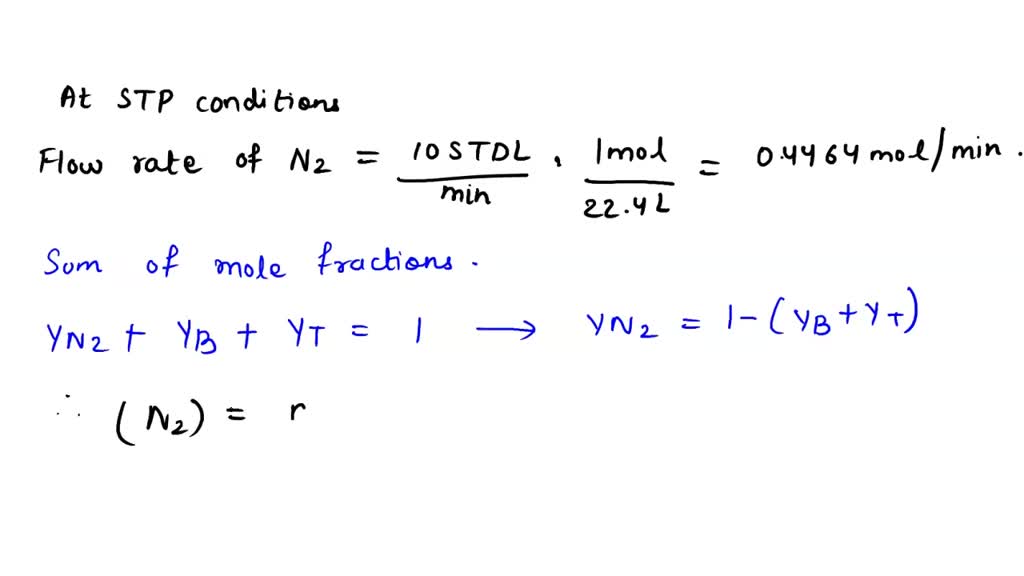 At STP conditions
Flow rate of N2 = 10 STDL / min . 1mol / 22.4 L = 0.4464 mol/min.
Sum of mole fractions.
YN2 + YB + YT = 1 → YN2 = 1-(YB+YT)
∴ (N2) = r